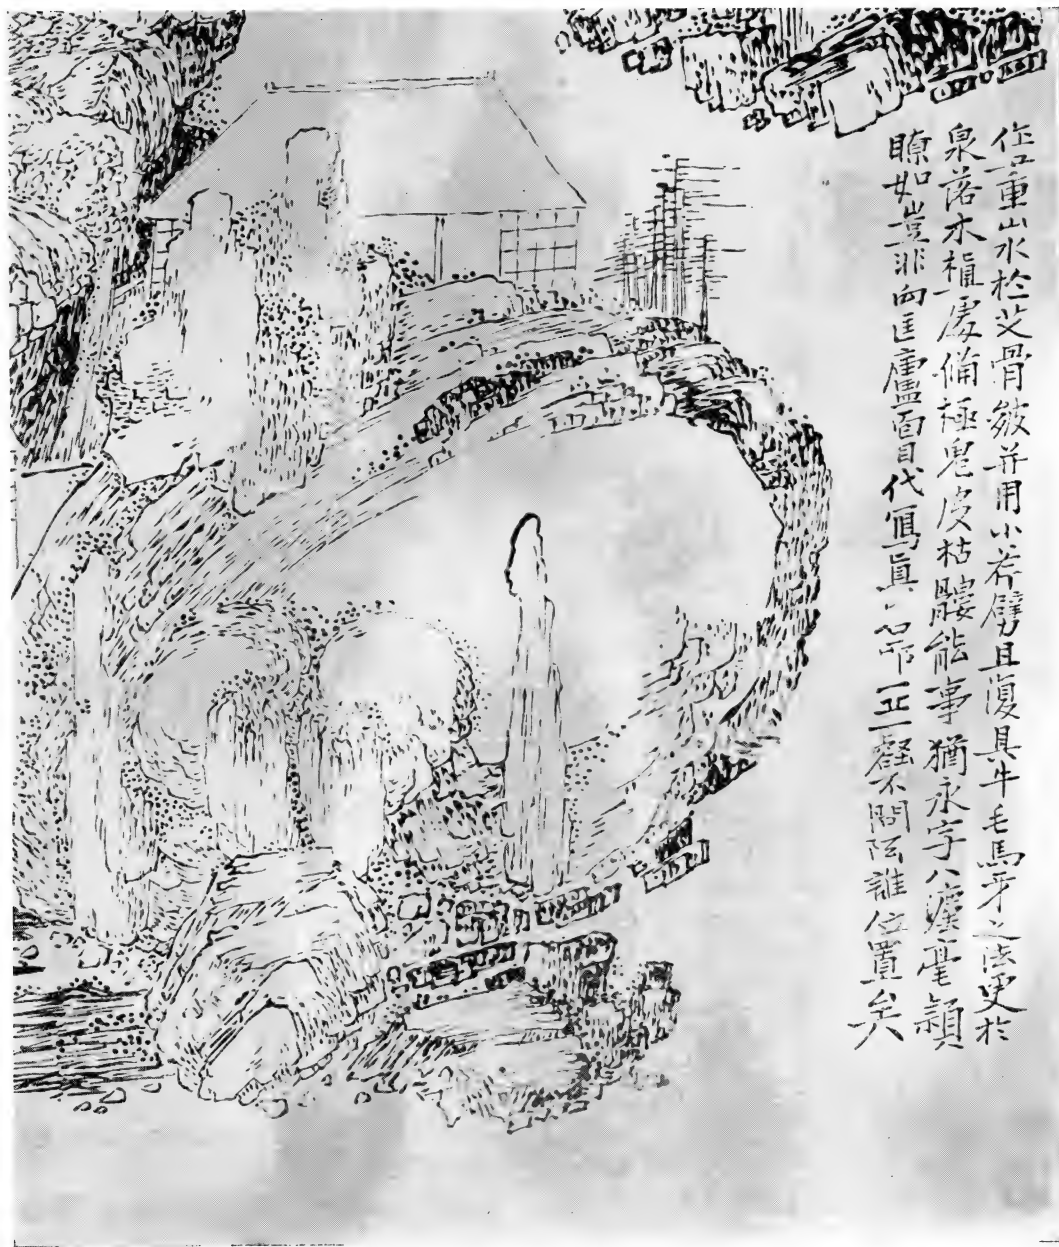 作重山水於芝骨皴并用小斧劈且復具牛毛馬牙之法更於
泉落木植處備極鬼皮枯髏能事猶永字八法毫穎
瞭如豈非向匡廬面目代寫真一丘一壑不問阮誰位置矣